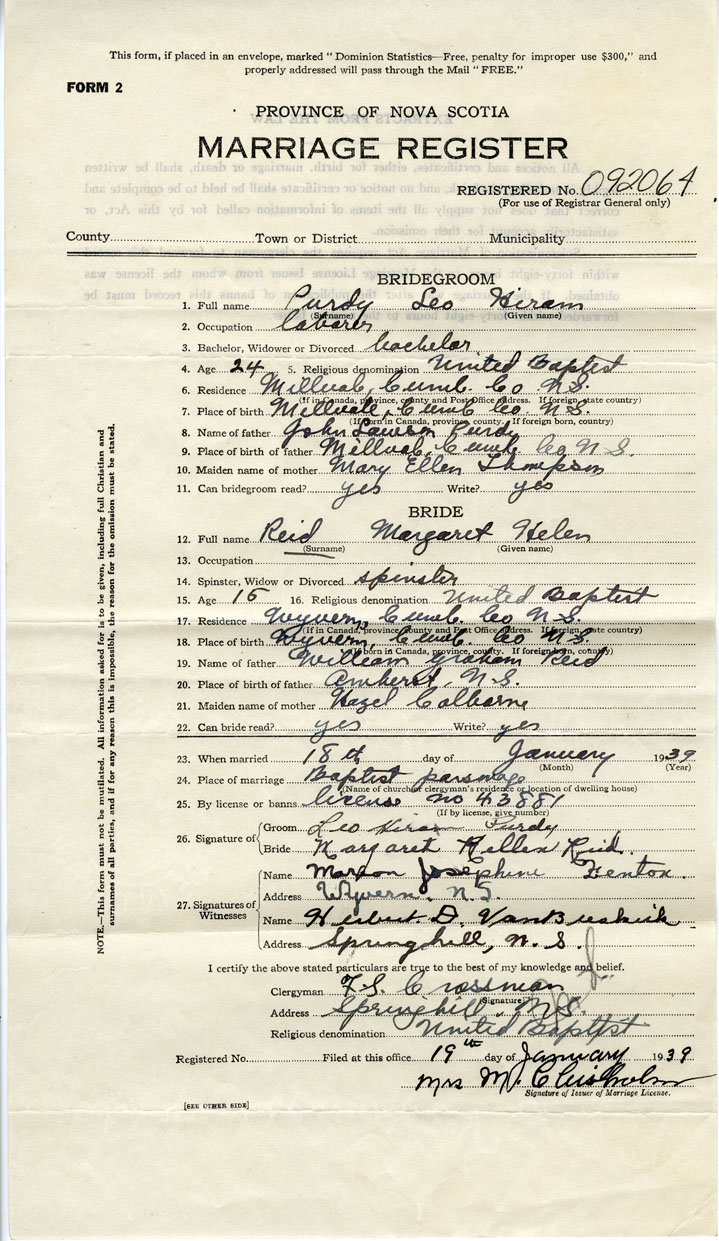 This form, if placed in an envelope, marked "Dominion Statistics—Free, penalty for improper use $300," and
properly addressed will pass through the Mail "FREE."
FORM 2
PROVINCE OF NOVA SCOTIA
MARRIAGE REGISTER
REGISTERED No. 092064
(For use of Registrar General only)
County Town or District Municipality
BRIDEGROOM
1. Full name Purdy Leo Hiram
(Surname) (Given name)
2. Occupation laborer
3. Bachelor, Widower or Divorced bachelor
4. Age 24 5. Religious denomination United Baptist
6. Residence Millvale, Cumb. Co N.S.
(If in Canada, province, county and Post Office address. If foreign state country)
7. Place of birth Millvale, Cumb Co. N.S.
(If born in Canada, province, county. If foreign born, country)
8. Name of father John Lawson Purdy
9. Place of birth of father Millvale, Cumb. Co N.S.
10. Maiden name of mother Mary Ellen Thompson
11. Can bridegroom read? yes Write? yes
BRIDE
12. Full name Reid Margaret Helen
(Surname) (Given name)
13. Occupation
14. Spinster, Widow or Divorced spinster
15. Age 16. Religious denomination United Baptist
17. Residence Wyvern, Cumb. Co N.S.
(If in Canada, province county and Post Office address. If foreign state country)
18. Place of birth Wyvern, Cumb. Co N.S.
(If born in Canada, province, county. If foreign born, country)
19. Name of father William Graham Reid
20. Place of birth of father Amherst, N.S.
21. Maiden name of mother Hazel Colborne
22. Can bride read? yes Write? yes
23. When married 18th day of January 1939
(Month) (Year)
24. Place of marriage Baptist parsonage
(Name of church or clergyman's residence or location of dwelling house)
25. By license or banns license no 43881
(If by license, give number)
26. Signature of Groom Leo Hiram Purdy
Bride Margaret Hellen Reid.
27. Signatures of Witnesses
Name Marion Josephine Fenton.
Address Wyvern. N.S.
Name Herbert. D. VanBuskirk
Address Springhill, N. S.
I certify the above stated particulars are true to the best of my knowledge and belief.
Clergyman F.S. Crossman
(Signature)
Address Springhill, N.S.
Religious denomination United Baptist
Registered No. Filed at this office 19th day of January 1939
Mrs M. Chisholm
Signature of Issuer of Marriage License.
[SEE OTHER SIDE]
NOTE.—This form must not be mutilated. All information asked for is to be given, including full Christian and
surnames of all parties, and if for any reason this is impossible, the reason for the omission must be stated.